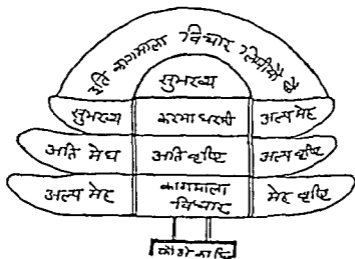 अति कागमाला विचार लिषीयै छै
सुभख्य
सुभख्य करमा धरसी अल्प मेह
अति मेघ अति वृष्टि अल्प वृष्टि
अल्प मेह कागमाला मेह वृष्टि
विचार